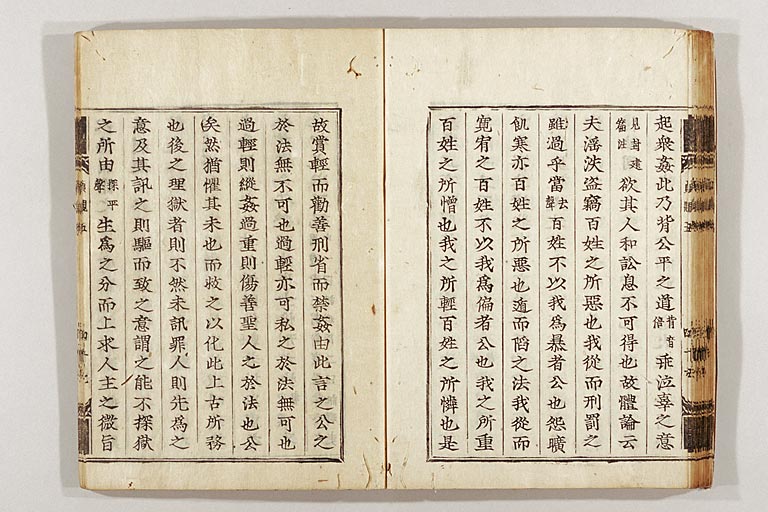 起衆姦此乃背公平之道背音倍乖泣辜之意
見封建篇注欲其人和訟息不可得也故體論云
夫滛泆盗竊百姓之所惡也我從而刑罰之
雖過乎當去聲百姓不以我爲暴者公也怨曠
飢寒亦百姓之所惡也遁而䧟之法我從而
寛宥之百姓不以我爲偏者公也我之所重
百姓之所憎也我之所輕百姓之所憐也是
故賞輕而勸善刑省而禁姦由此言之公之
於法無不可也過輕亦可私之於法無可也
過輕則縱姦過重則傷善聖人之於法也公
矣然猶懼其未也而救之以化此上古所務
也後之理獄者則不然未訊罪人則先爲之
意及其訊之則驅而致之意謂之能不探獄
之所由探平聲生爲之分而上求人主之微旨